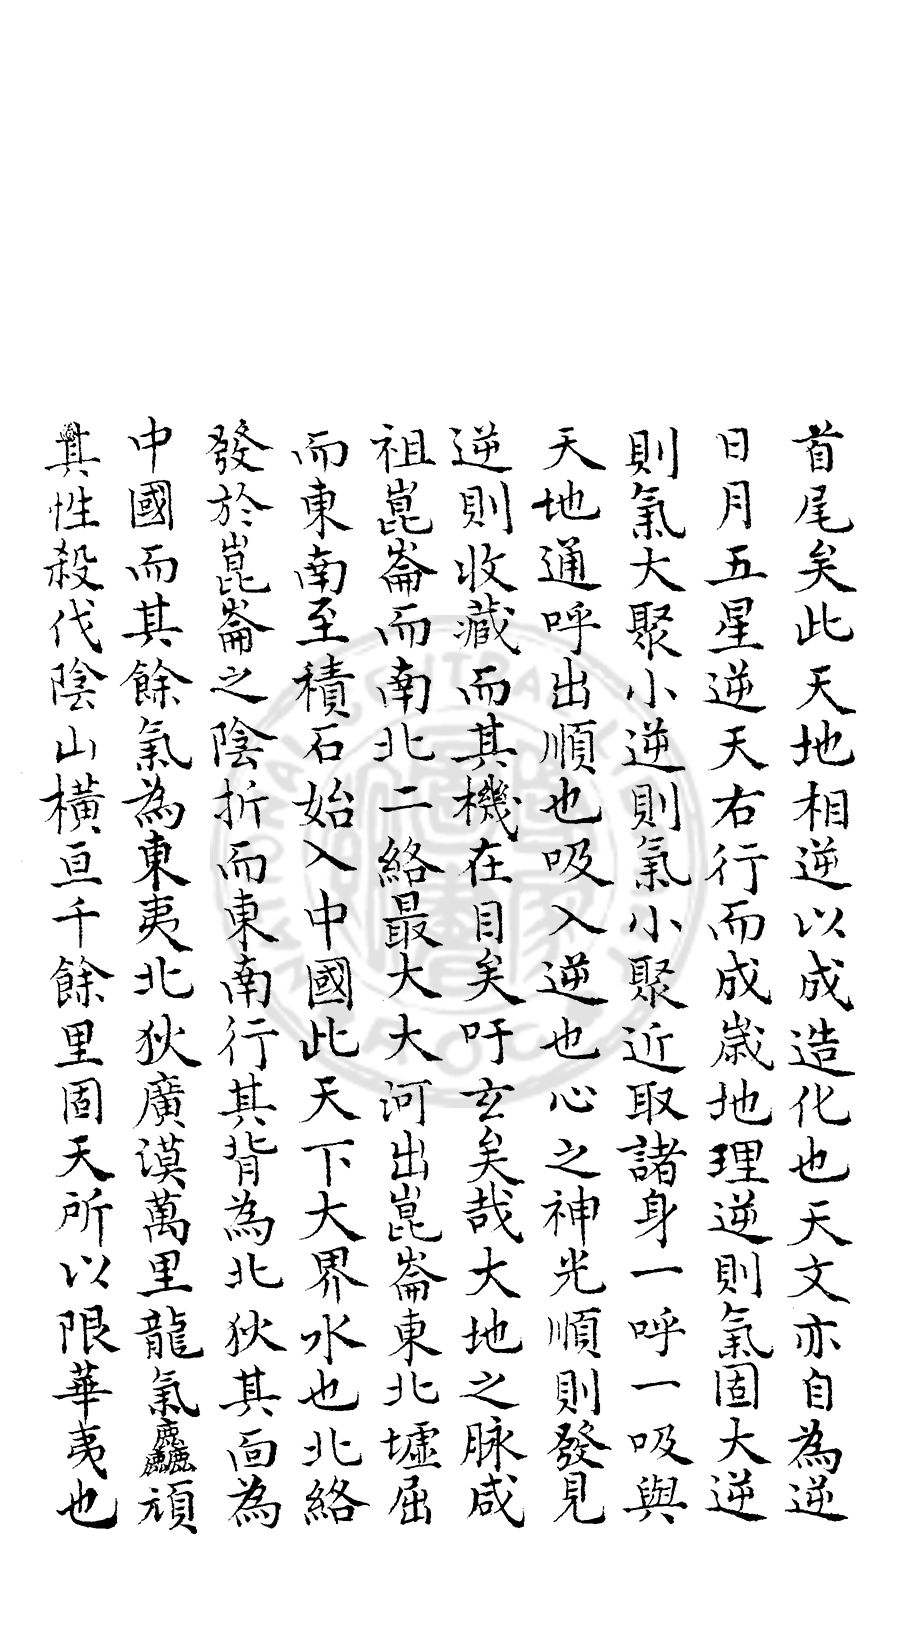 首尾矣此天地相逆以成造化也天文亦自為逆
日月五星逆天右行而成歲地理逆則氣固大逆
則氣大聚小逆則氣小聚近取諸身一呼一吸與
天地通呼出順也吸入逆也心之神光順則發見
逆則收藏而其機在目矣吁玄矣哉大地之脉咸
祖崑崙而南北二絡最大大河出崑崙東北墟屈
而東南至積石始入中國此天下大界水也北絡
發於崑崙之陰折而東南行其背為北狄其面為
中國而其餘氣為東夷北狄廣漠萬里龍氣麤頑
其性殺伐陰山橫亘千餘里固天所以限華夷也